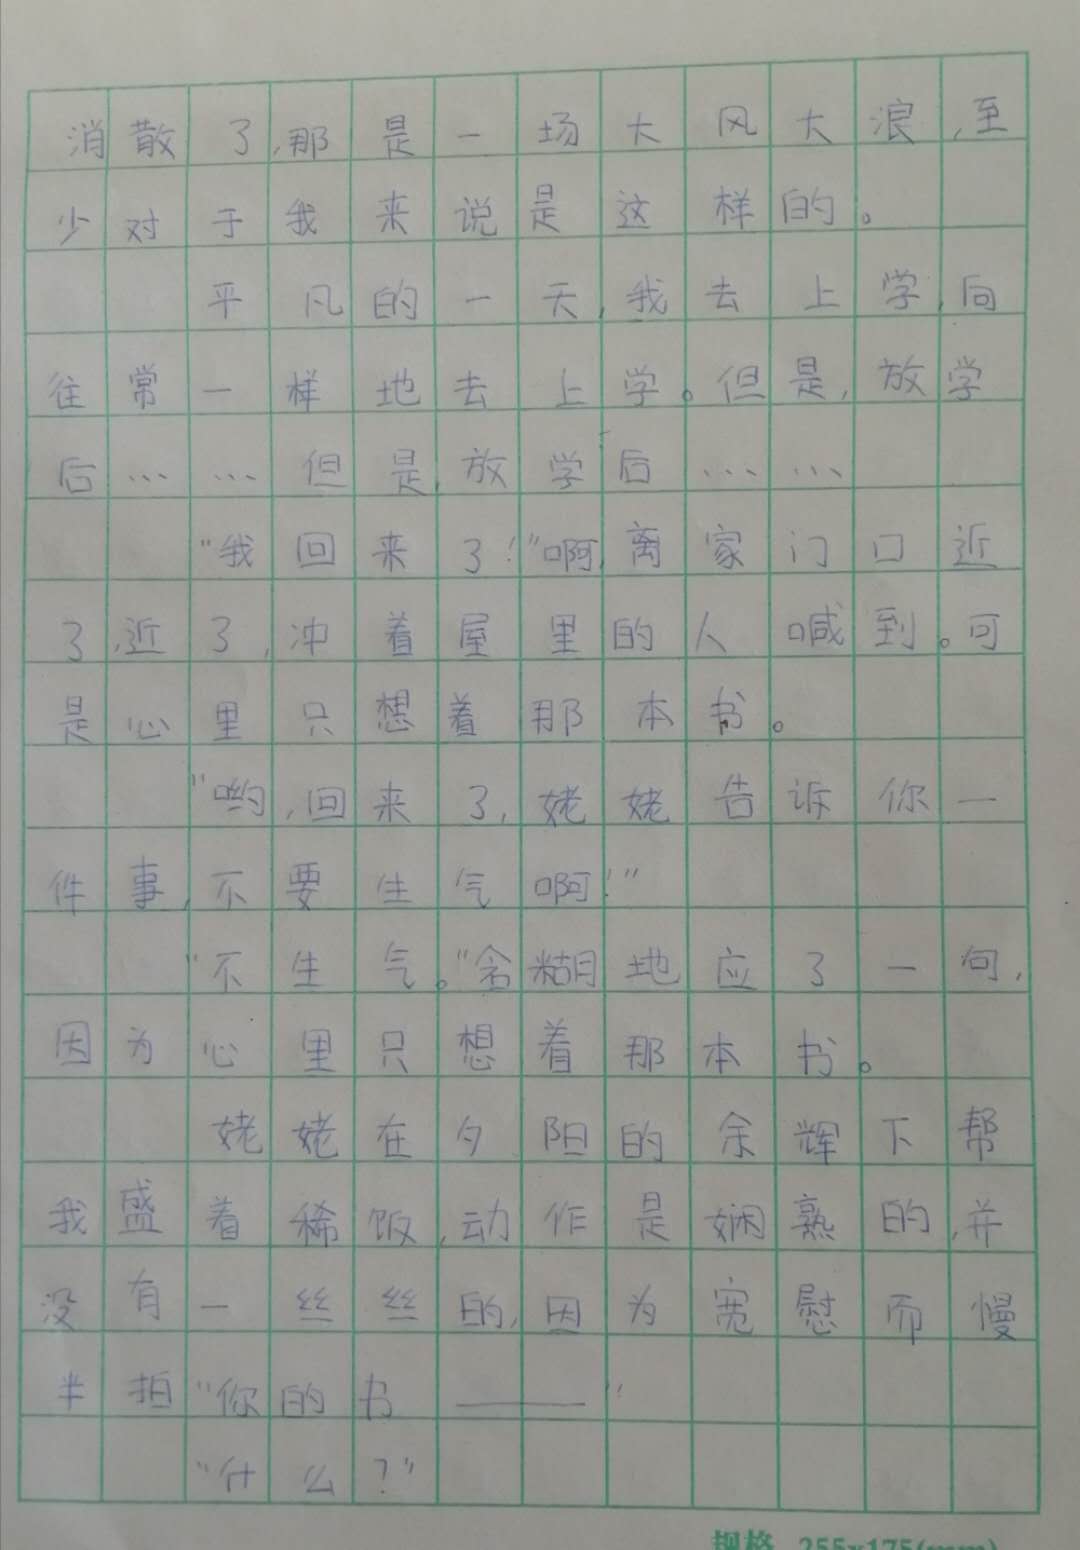 消散了,那是一场大风大浪,至
少对于我来说是这样的。
平凡的一天,我去上学,向
往常一样地去上学。但是,放学
后……但是,放学后……
“我回来了!”啊,离家门口近
了,近了,冲着屋里的人喊到。可
是心里只想着那本书。
“哟,回来了,姥姥告诉你一
件事,不要生气啊!”
“不生气。”含糊地应了一句,
因为心里只想着那本书。
姥姥在夕阳的余辉下帮
我盛着稀饭,动作是娴熟的,并
没有一丝丝的,因为宽慰而慢
半拍“你的书——”
“什么?”
规格 255x175(mm)